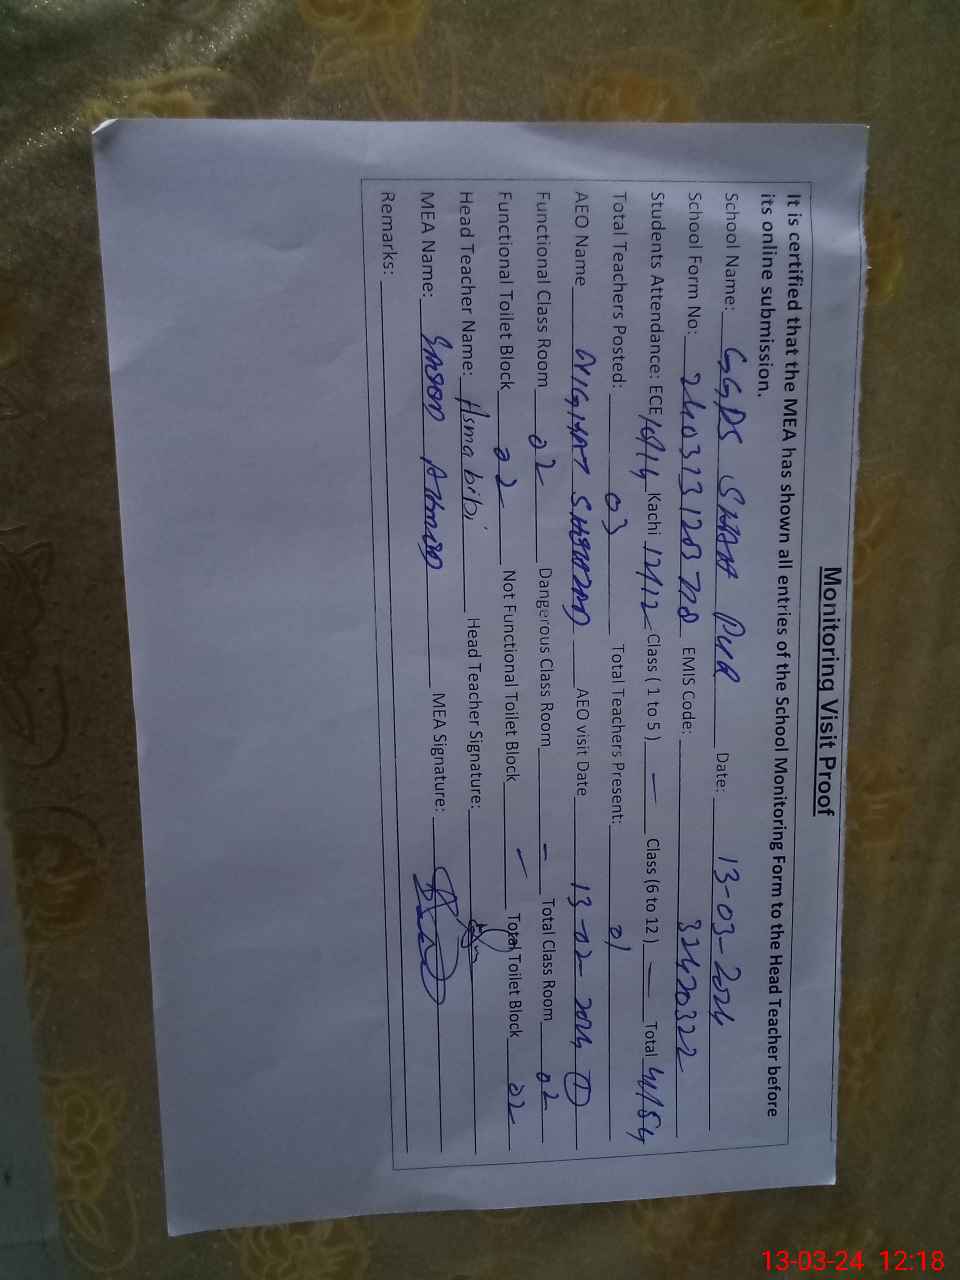 Monitoring Visit Proof
It is certified that the MEA has shown all entries of the School Monitoring Form to the Head Teacher before
its online submission.
School Name: GGPS SHAH PUR Date: 13-03-2024
School Form No: EMIS Code: 32420322
Students Attendance: ECE Kachi 12/12 Class ( 1 to 5 ) — Class (6 to 12 ) — Total
Total Teachers Posted: 03 Total Teachers Present: 01
AEO Name NIGHAT AEO visit Date 13-02-2024 ①
Functional Class Room 02 Dangerous Class Room — Total Class Room 02
Functional Toilet Block 02 Not Functional Toilet Block — Total Toilet Block 02
Head Teacher Name: Asma bibi Head Teacher Signature:
MEA Name: MEA Signature:
Remarks:
13-03-24 12:18